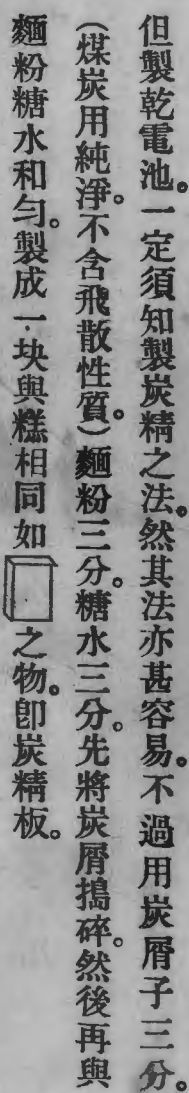 但製乾電池。一定須知製炭精之法。然其法亦甚容易。不過用炭屑子三分。
(煤炭用純淨。不含飛散性質。)麵粉三分。糖水三分。先將炭屑搗碎。然後再與
麵粉糖水和勻。製成一块與糕相同如之物。卽炭精板。